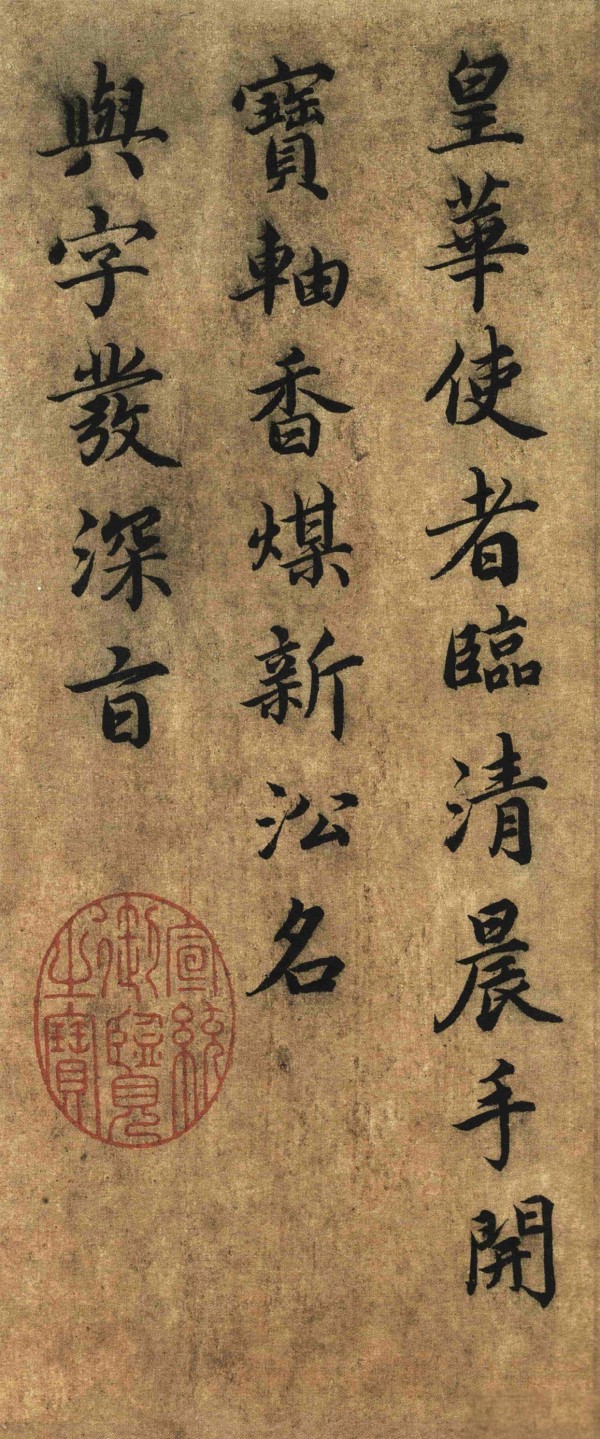 皇華使者臨清晨手開
寶軸香煤新㳂名
與字發深㫖
宣統
御覽
之寶